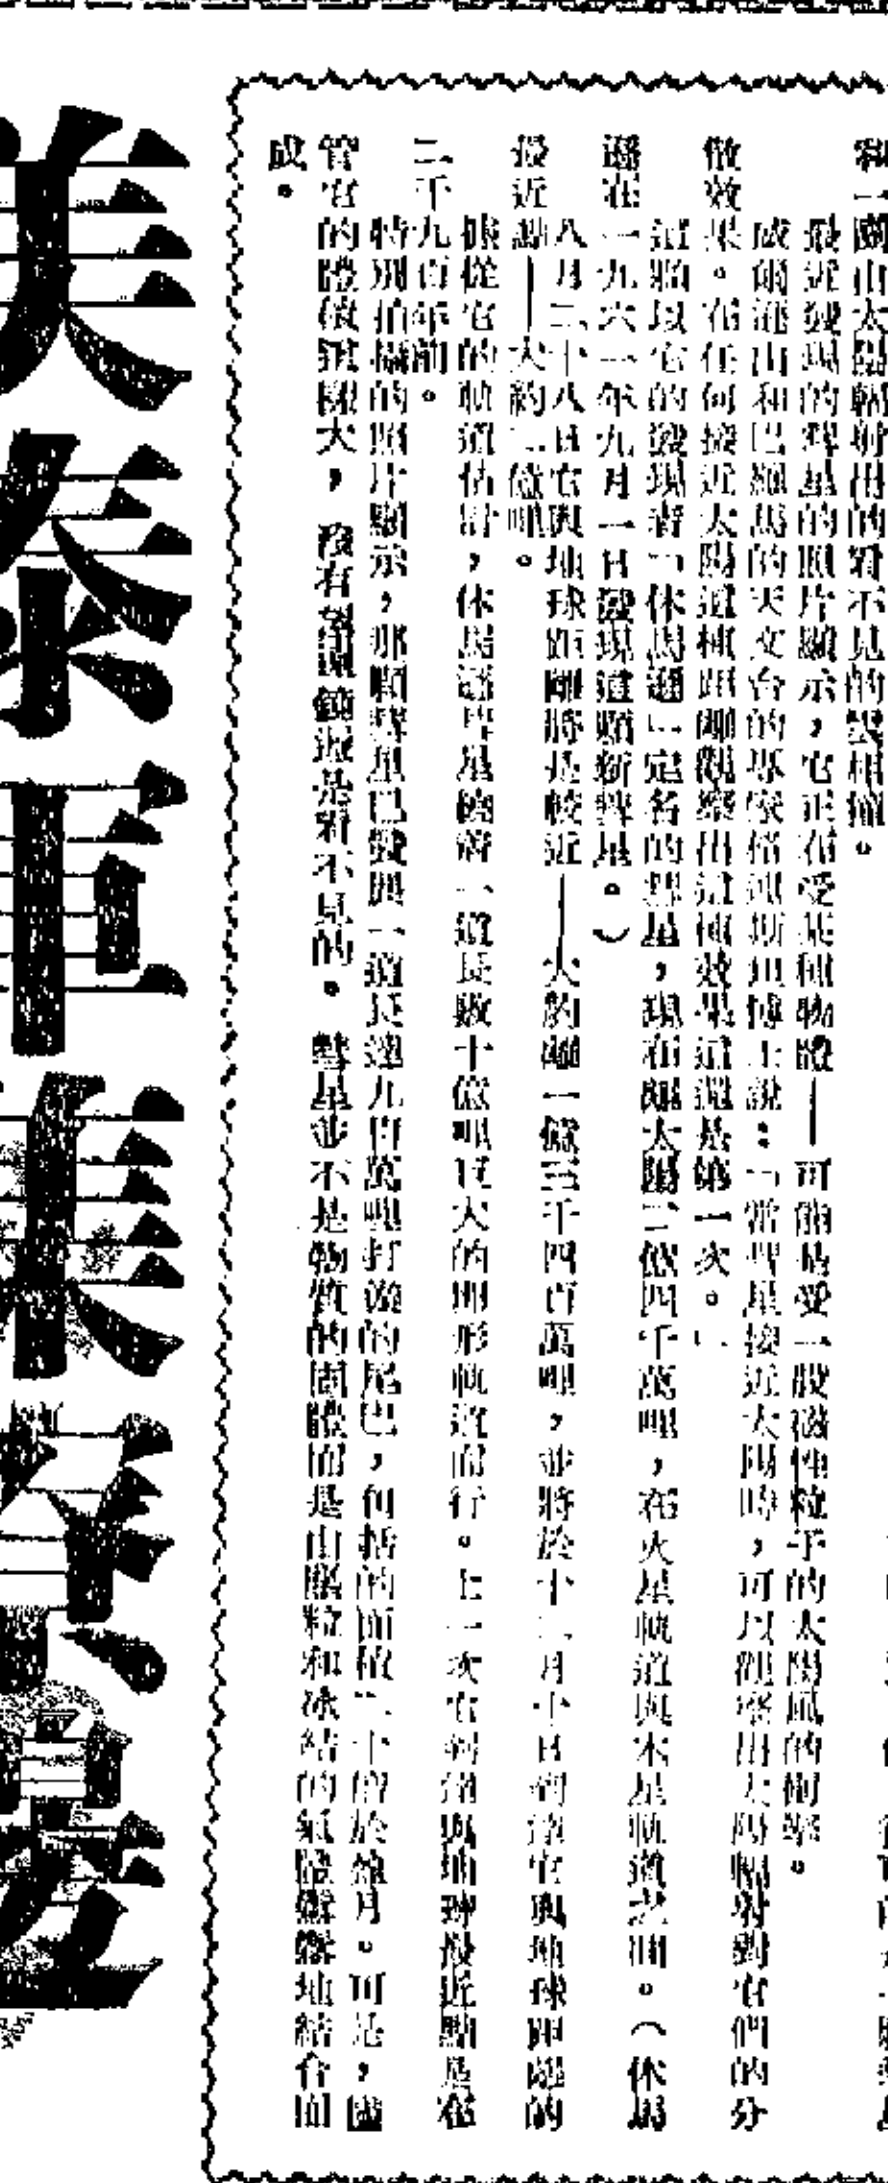 和一團由太陽輻射出的看不見的雲相撞。
最近發現的彗星的照片顯示，它正在受某種物體——可能是受一股磁性粒子的太陽風的衝擊。
威爾遜山和巴羅馬的天文台的專家格連斯坦博士說：「當彗星接近太陽時，可以觀察出太陽輻射對它們的分
散效果。在任何接近太陽這種距離觀察出這種效果這還是第一次。」
這顆以它的發現者「休馬遜」定名的彗星，現在離太陽二億四千萬哩，在火星軌道與木星軌道之間。（休馬
遜在一九六一年九月一日發現這顆新彗星。）
八月二十八日它與地球距離將是較近——大約離一億三千四百萬哩，並將於十二月十日到達它與地球距離的
最近點——大約二億哩。
據從它的軌道估計，休馬遜彗星橫著一道長數十億哩巨大的卵形軌道而行。上一次它到達與地球最近點是在
二千九百年前。
特別拍攝的照片顯示，那顆彗星已發展一道長達九百萬哩打旋的尾巴，包括的面積二十倍於盈月。可是，儘
管它的體積這樣大，沒有望遠鏡還是看不見的。彗星並不是物質的固體而是由塵粒和冰結的氣體鬆鬆地結合而
成。
美泰軍集